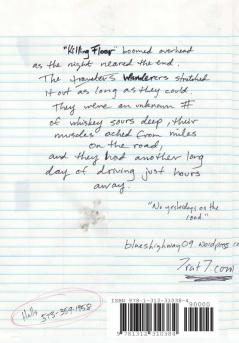 "Killing Floor" boomed overhead
as the night neared the end.
The travelers Wanderers stretched
it out as long as they could.
They were an unknown #
of whiskey sours deep, their
muscles ached from miles
on the road,
and they had another long
day of driving just hours
away.
"No yesterdays on the
road."
blueshighway09 wordpress co
7rat7.com
Hulls
573-359-1958
ISBN 978-1-312-31038-4
90000
9 781312 310384